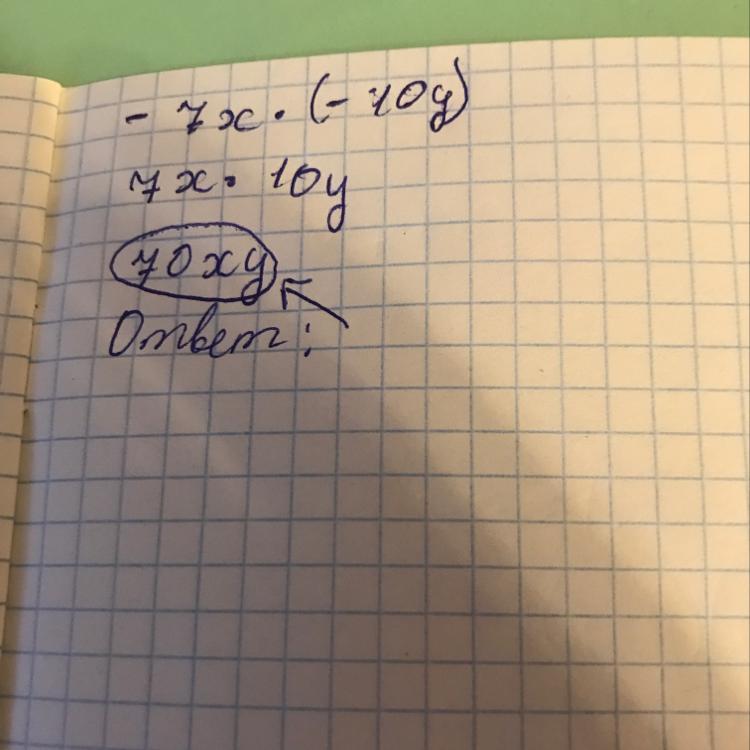 - 7x · (- 10y)
7x · 10y
70xy
Ответ: